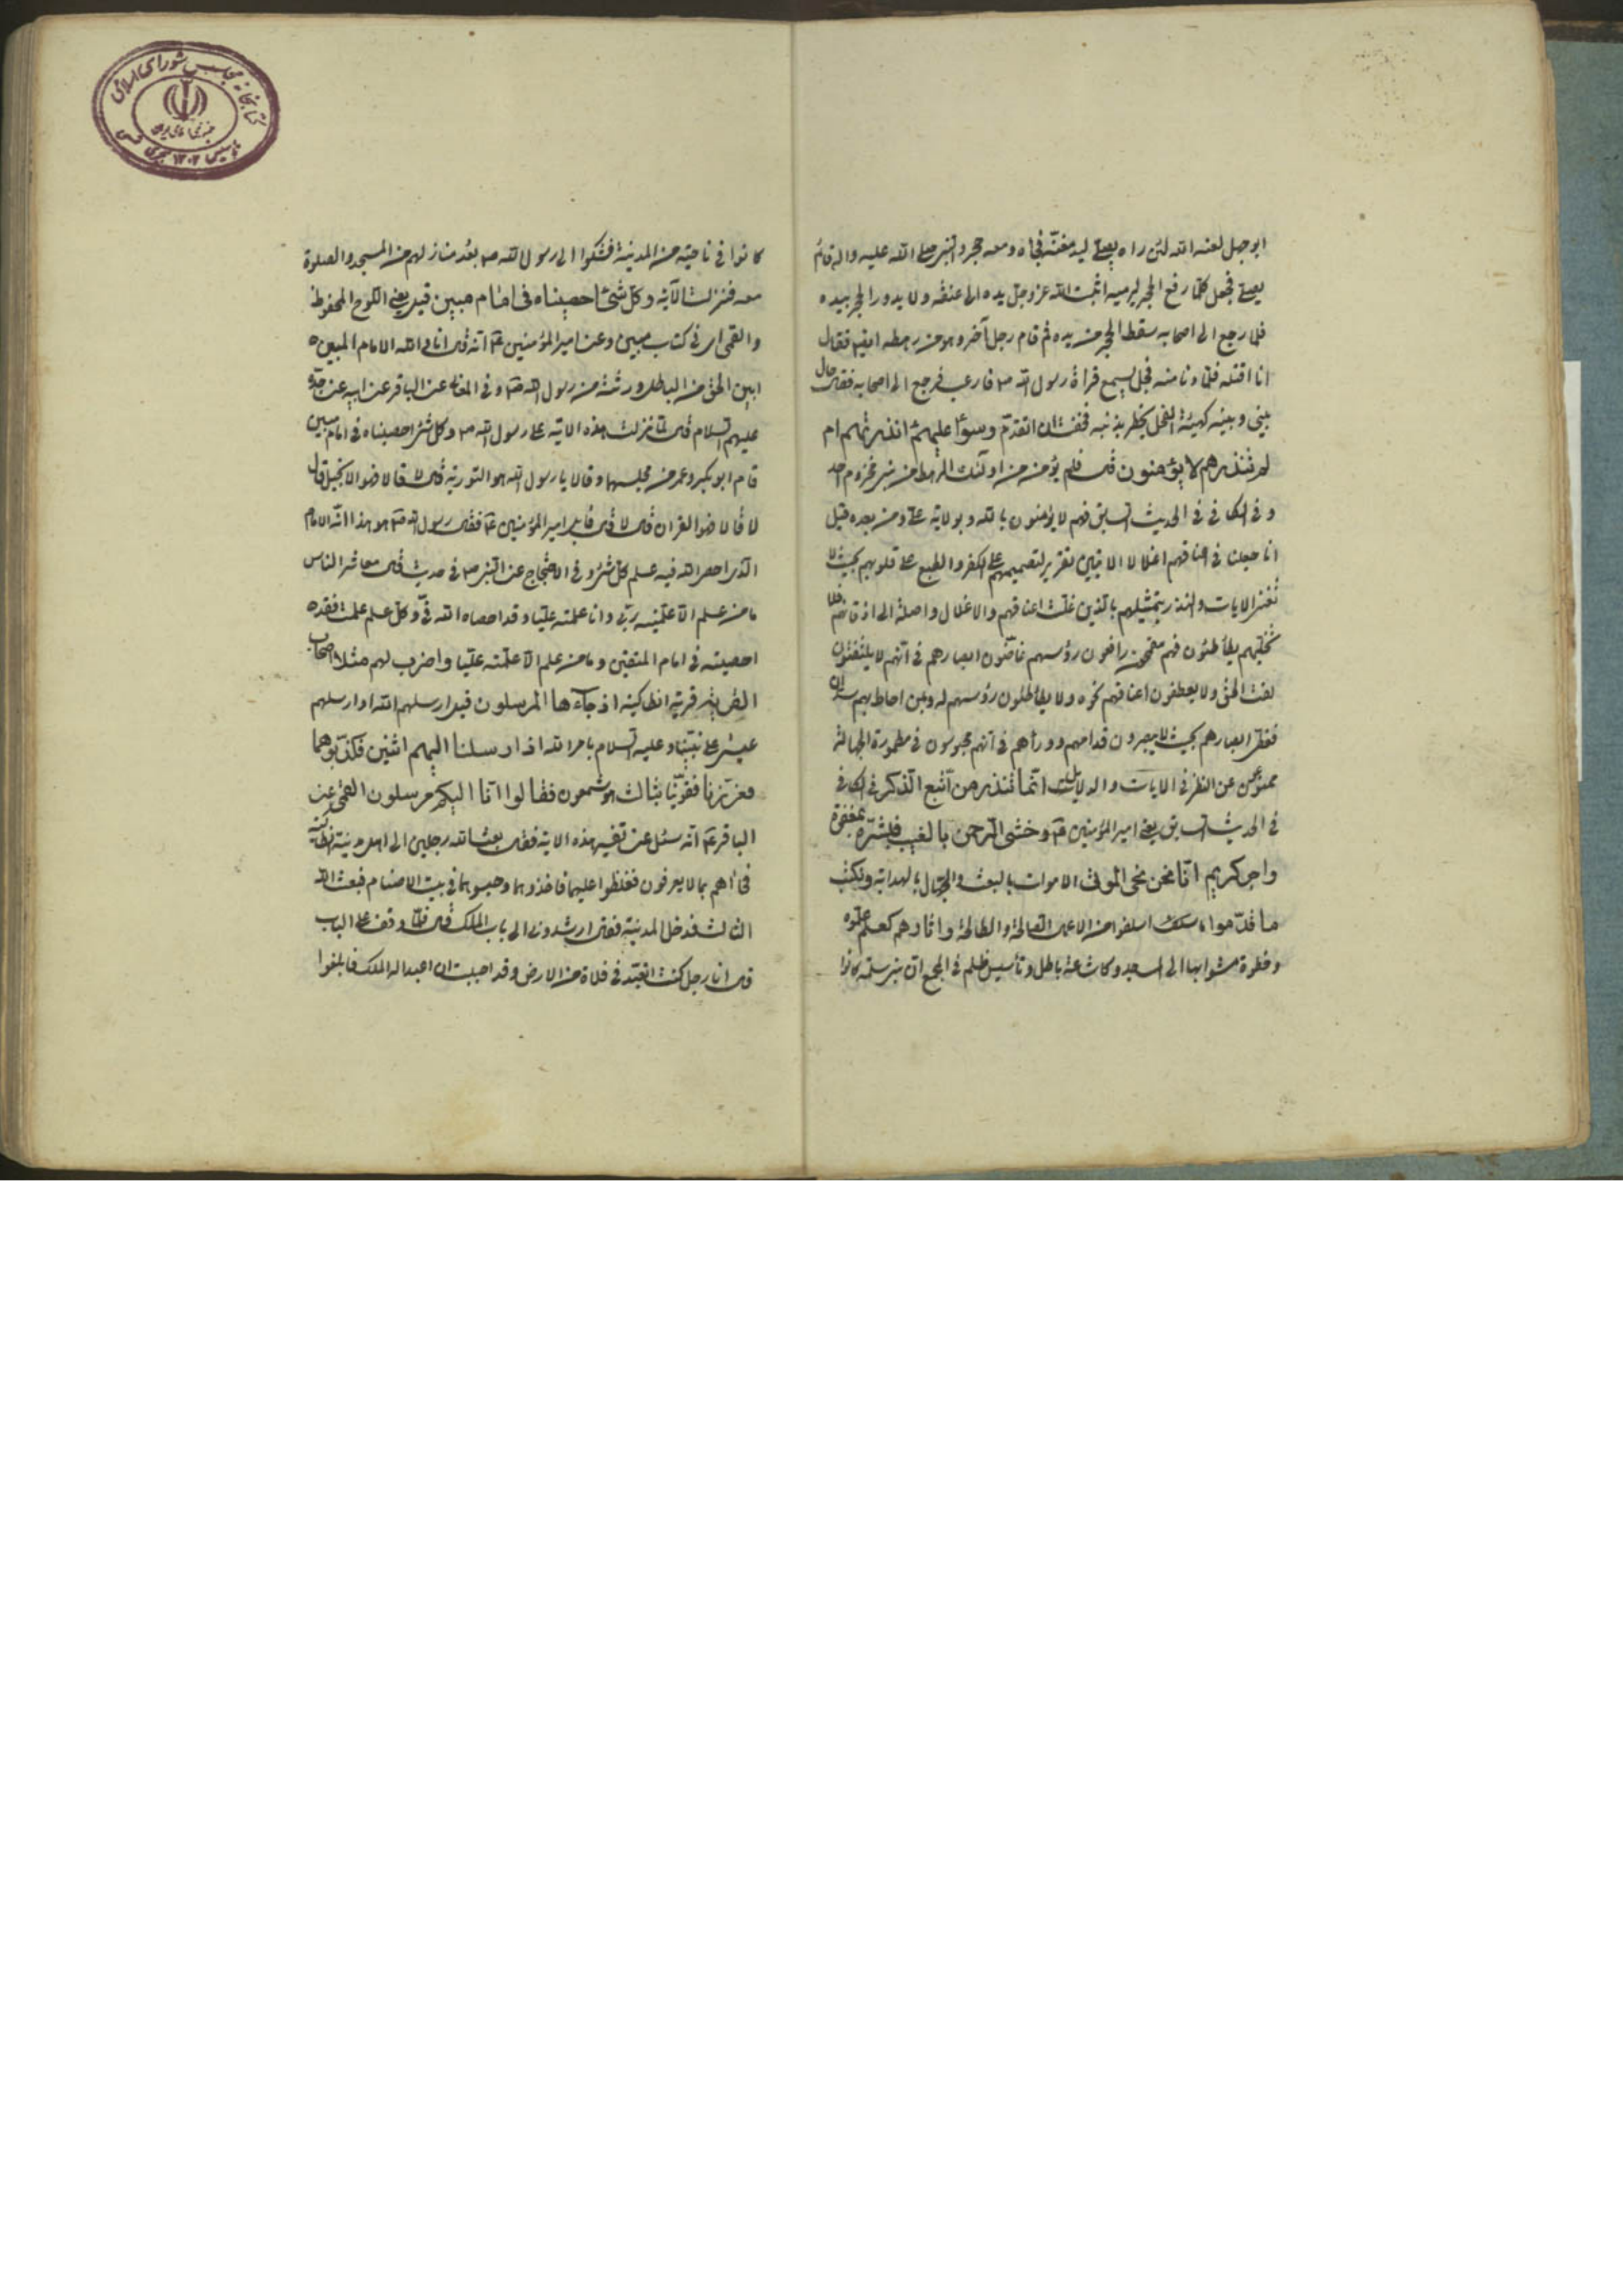 ابو جهل لعنه الله لئن راه يصلي ليدمغنّه فجاءه ومعه حجر والنبي صلى الله عليه واله قائم
يصلي فجعل كلّما رفع الحجر ليرميه اثبت الله عز وجل يده الى عنقه ولا يدور الحجر بيده
فلما رجع الى اصحابه سقط الحجر من يده ثم قام رجل آخر وهو من رهطه ايضا فقال
انا اقتله فلمّا دنا منه فجعل يسمع قراءة رسول الله ص فارعب فرجع الى اصحابه فقال حال
بيني وبينه كهيئة الفحل يخطر بذنبه فخفت ان اتقدّم وسواء عليهم ءانذرتهم ام
لم تنذرهم لا يؤمنون قال فلم يؤمن من اولئك الرهط من بني مخزوم احد
وفي الكافي في الحديث السابق فهم لا يؤمنون بالله وبولاية علي ومن بعده قيل
انا جعلنا في اعناقهم اغلالا الايتين تقرير لتصميمهم على الكفر والطبع على قلوبهم بحيث لا
تغني الايات والنذر بتمثيلهم بالذين غلّت اعناقهم والاغلال واصلة الى اذقانهم فلا
تخلّيهم يطأطئون فهم مقمحون رافعون رؤسهم غاضّون ابصارهم في انّهم لا يلتفتون
لفت الحق ولا يعطفون اعناقهم نحوه ولا يطأطئون رؤسهم له وبمن احاط بهم سدّان
فغطّى ابصارهم بحيث لا يبصرون قدامهم ووراءهم في انهم محبوسون في مطمورة الجهالة
ممنوعون عن النظر في الايات والدلايل انّما تنذر من اتّبع الذّكر في الكافي
في الحديث السابق يعني امير المؤمنين ع وخشي الرّحمن بالغيب فبشّره بمغفرة
واجر كريم انّا نحن نحي الموتى الاموات بالبعث والجهّال بالهداية ونكتب
ما قدّموا ما اسلفوا من الاعمال الصالحة والطالحة واثارهم كعلم علّموه
وخطوة مشوا بها الى المسجد وكاشاعة باطل وتأسيس ظلم في المجمع ان بني سلمة كانوا
كانوا في ناحية من المدينة فشكوا الى رسول الله ص بعد منازلهم من المسجد والصلوة
معه فنزلت الآية وكلّ شئ احصيناه في امام مبين قيل يعني اللوح المحفوظ
والقمي اي في كتاب مبين وعن امير المؤمنين ع انّه قال انا والله الامام المبين
ابيّن الحق من الباطل ورثته من رسول الله ص وفي المعاني عن الباقر عن ابيه عن جدّه
عليهم السلام قال لمّا نزلت هذه الاية على رسول الله ص وكل شئ احصيناه في امام مبين
قام ابو بكر وعمر من مجلسهما وقالا يا رسول الله هو التورية قال لا قالا فهو الانجيل قال
لا قالا فهو القران قال لا قال فاقبل امير المؤمنين ع فقال رسول الله ص هو هذا انّه الامام
الّذي احصى الله فيه علم كلّ شئ وفي الاحتجاج عن النبي ص في حديث قال معاشر الناس
ما من علم الّا علّمنيه ربّي وانا علّمته عليّا وقد احصاه الله فيّ وكلّ علم علمت فقد
احصيته في امام المتقين وما من علم الّا علّمته عليّا واضرب لهم مثلا اصحاب
القرية قرية انطاكية اذ جاءها المرسلون قيل ارسلهم الله او ارسلهم
عيسى على نبيّنا وعليه السلام بامر الله اذ ارسلنا اليهم اثنين فكذّبوهما
فعززنا فقوّينا بثالث هو شمعون فقالوا انّا اليكم مرسلون القمي عن
الباقر ع انّه سئل عن تفسير هذه الاية فقال بعث الله رجلين الى اهل مدينة انطاكية
فجاءاهم بما لا يعرفون فغلظوا عليهما فاخذوهما وحبسوهما في بيت الاصنام فبعث الله
الثالث فدخل المدينة فقال ارشدوني الى باب الملك قال فلمّا وقف على الباب
قال انا رجل كنت اتعبّد في فلاة من الارض وقد احببت ان اعبد اله الملك فابلغوا
كتابخانه مجلس شورای اسلامی
تاسیس ۱۳۰۲ هجری شمسی